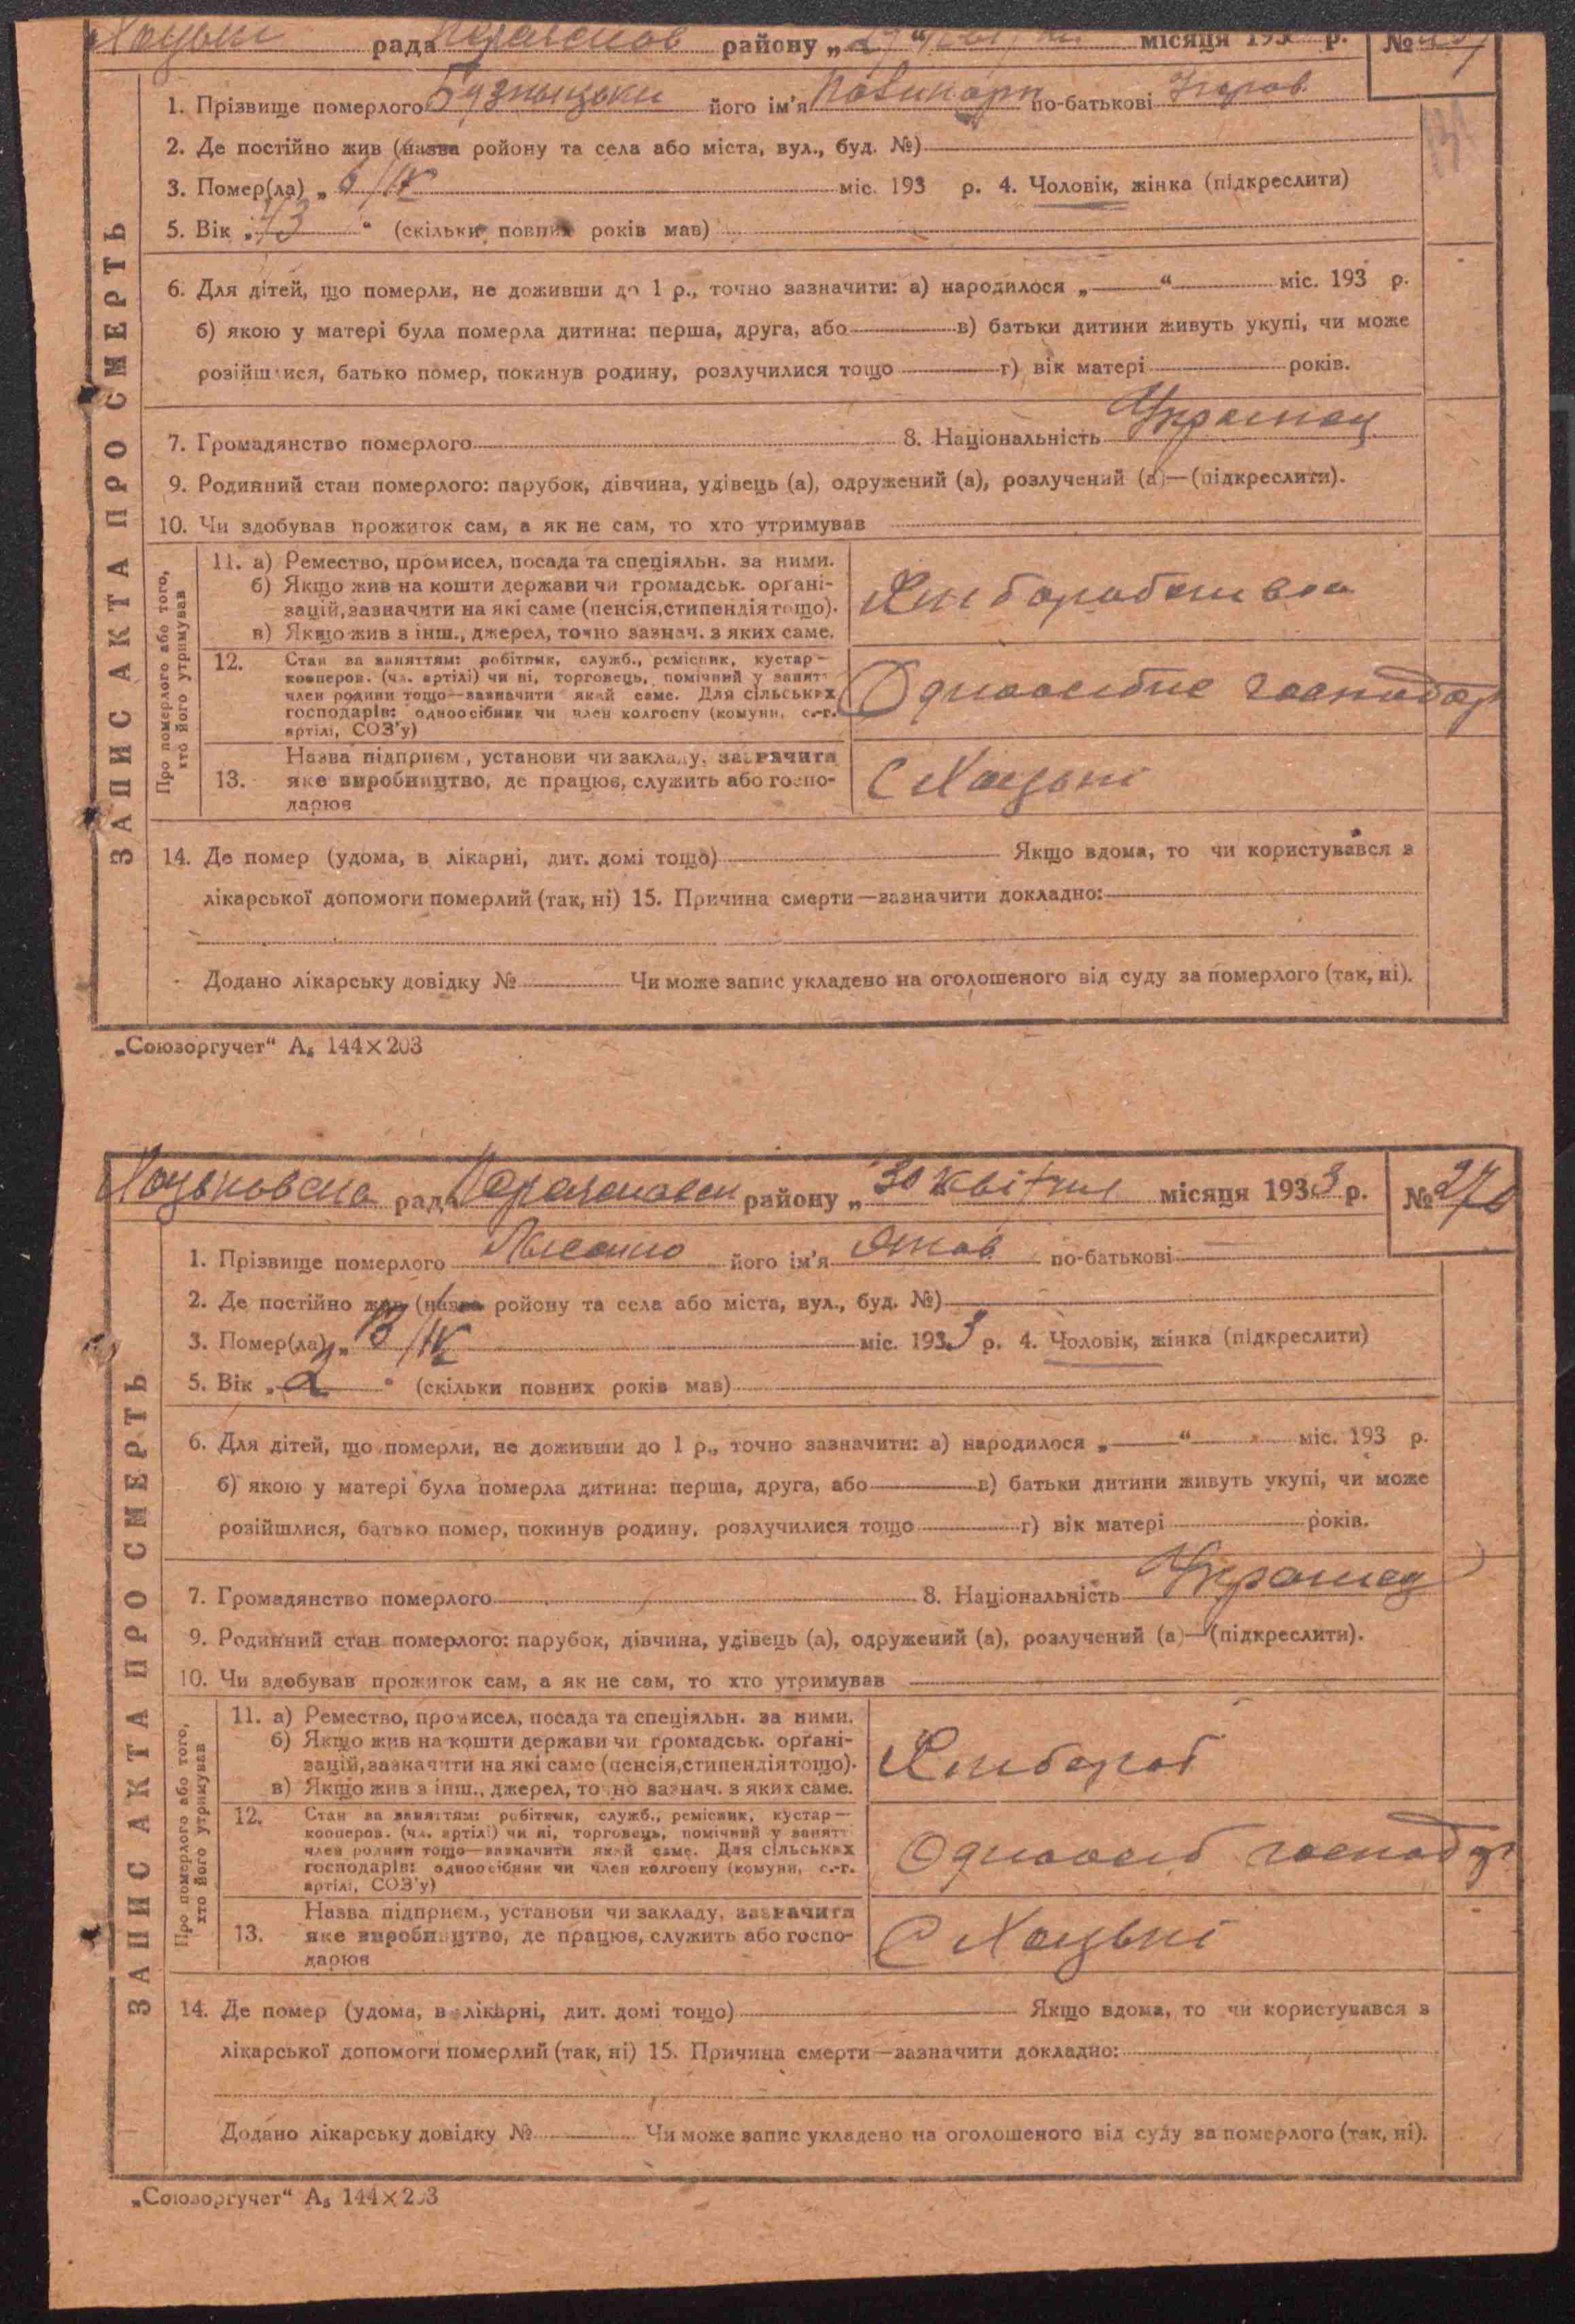 Хоцьки рада району „29“ місяця 193 р. №
1. Прізвище померлого його ім'я по-батькові
2. Де постійно жив (назва ройону та села або міста, вул., буд. №)
3. Помер(ла) „6/IV міс. 193 р. 4. Чоловік, жінка (підкреслити)
5. Вік „73“ (скільки повних років мав)
6. Для дітей, що померли, не доживши до 1 р., точно зазначити: а) народилося „ “ міс. 193 р.
б) якою у матері була померла дитина: перша, друга, або в) батьки дитини живуть укупі, чи може
розійшлися, батько помер, покинув родину, розлучилися тощо г) вік матері років.
7. Громадянство померлого 8. Національність Украинец
9. Родинний стан померлого: парубок, дівчина, удівець (а), одружений (а), розлучений (а)—(підкреслити).
10. Чи здобував прожиток сам, а як не сам, то хто утримував
ЗАПИС АКТА ПРО СМЕРТЬ
Про померлого або того,
хто його утримував
11. а) Ремество, промисел, посада та спеціяльн. за ними.
б) Якщо жив на кошти держави чи громадськ. органі-
зацій, зазначити на які саме (пенсія, стипендія тощо).
в) Якщо жив з інш., джерел, точно зазнач. з яких саме.
12. Стан за заняттям: робітник, служб., ремісник, кустар—
кооперов. (чл. артілі) чи ні, торговець, помічний у занятт
член родини тощо—зазначити який саме. Для сільських
господарів: одноосібник чи член колгоспу (комуни, с.-г.
артілі, СОЗ'у)
господар
13. Назва підприєм., установи чи закладу, зазначити
яке виробництво, де працює, служить або госпо-
дарює
С Хоцьки
14. Де помер (удома, в лікарні, дит. домі тощо) Якщо вдома, то чи користувався з
лікарської допомоги померлий (так, ні) 15. Причина смерти—зазначити докладно:
Додано лікарську довідку № Чи може запис укладено на оголошеного від суду за померлого (так, ні).
„Союзоргучет“ А₅ 144×203
рада району „30 квітня місяця 1933 р. № 270
1. Прізвище померлого його ім'я Яков по-батькові
2. Де постійно жив (назва ройону та села або міста, вул., буд. №)
3. Помер(ла) „13/IV міс. 1933 р. 4. Чоловік, жінка (підкреслити)
5. Вік „2“ (скільки повних років мав)
6. Для дітей, що померли, не доживши до 1 р., точно зазначити: а) народилося „ “ міс. 193 р.
б) якою у матері була померла дитина: перша, друга, або в) батьки дитини живуть укупі, чи може
розійшлися, батько помер, покинув родину, розлучилися тощо г) вік матері років.
7. Громадянство померлого 8. Національність Украинец
9. Родинний стан померлого: парубок, дівчина, удівець (а), одружений (а), розлучений (а)—(підкреслити).
10. Чи здобував прожиток сам, а як не сам, то хто утримував
ЗАПИС АКТА ПРО СМЕРТЬ
Про померлого або того,
хто його утримував
11. а) Ремество, промисел, посада та спеціяльн. за ними.
б) Якщо жив на кошти держави чи громадськ. органі-
зацій, зазначити на які саме (пенсія, стипендія тощо).
в) Якщо жив з інш., джерел, точно зазнач. з яких саме.
Хлибороб
12. Стан за заняттям: робітник, служб., ремісник, кустар—
кооперов. (чл. артілі) чи ні, торговець, помічний у занятт
член родини тощо—зазначити який саме. Для сільських
господарів: одноосібник чи член колгоспу (комуни, с.-г.
артілі, СОЗ'у)
Одноосиб господар
13. Назва підприєм., установи чи закладу, зазначити
яке виробництво, де працює, служить або госпо-
дарює
С Хоцьки
14. Де помер (удома, в лікарні, дит. домі тощо) Якщо вдома, то чи користувався з
лікарської допомоги померлий (так, ні) 15. Причина смерти—зазначити докладно:
Додано лікарську довідку № Чи може запис укладено на оголошеного від суду за померлого (так, ні).
„Союзоргучет“ А₅ 144×203